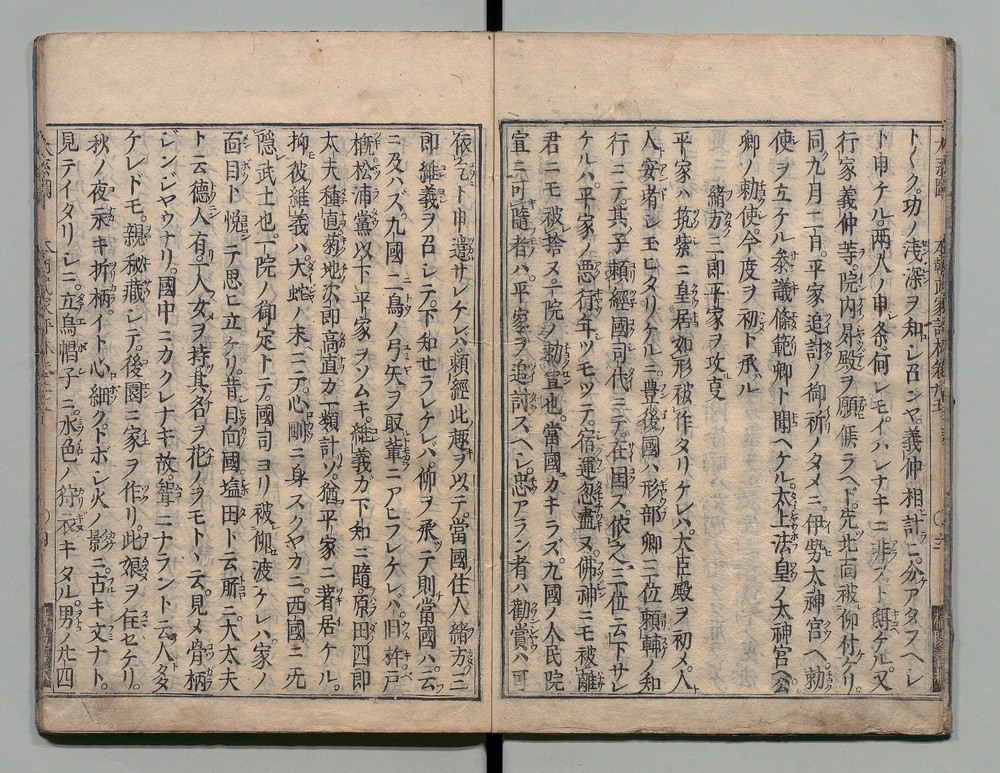 トイク功ノ浅深ヲ知レ召ンヤ義仲相計ヒ分アタスヘレ
ト申ケル両人ノ申条何レモイハレナキニ非スト聞ケル又
行家義仲等院内昇殿ヲ願候ラヘド先此向被仰付ケリ
同九月二日平家追討ノ御祈ノタメニ伊勢太神宮ヘ勅
使ヲ立ケル参議脩範卿ト聞ヘケル太上法皇ノ太神宮公
卿ノ勅使今度ヲ初ト承ル
緒方三郎平家ヲ攻事
平家ハ筑紫ニ皇居如形被作タリケレハ大臣殿ヲ初メ人
人安堵シ玉ヒタリケルニ豊後國ハ形部卿三位頼輔ノ知
行ニテ其子頼經國司代ニテ在国ス依之三位ニ云下サレ
ケルハ平家ノ悪行年ツモツテ宿運忽盡ヌ佛神ニモ被離
君ニモ被捨ステ院ノ勅宣也當國カキラズ九國ノ人民院
宣ニ可随者ハ平家ヲ追討スヘレ忠アラン者ハ勸賞ハ可
依乞ト申遣サレケレバ頼經此趣ヲ以テ當國住人緒方三
郎維義ヲ召レテ下知セラレケレバ仰ヲ承テ則當國ハ云
ニ及ハズ九國二嶋ノ弓矢ヲ取輩ニアヒフレケレバ旧杵戸
槻松浦黨以下平家ヲソムキ維義カ下知ニ隨原田四郎
太夫種直菊地次郎高直カ一類計ソ猶平家ニ著居ケル
抑彼維義ハ大蛇ノ末ニテ心剛ニ身スクヤカニ西國ニ无
隠武士也一院ノ御定トテ國司ヨリ被仰渡ケレハ家ノ
面目ト悦ニテ思ヒ立ケリ昔日向國塩田ト云所ニ大太夫
ト云德人有一人女ヲ持其名ヲ花ノヲモトヽ云見メ骨柄
レンジヤウナリ國中ニカクレナキ故聟ニナラント云人々タ
ケレドモ親秘藏レテ後園ニ家ヲ作リ此娘ヲ住セケリ
秋ノ夜永キ折柄イト心細クトボレ火ノ影ニ古キ文ナト
見テイタリレニ立烏帽子ニ水色ノ狩衣キタル男ノ廿四